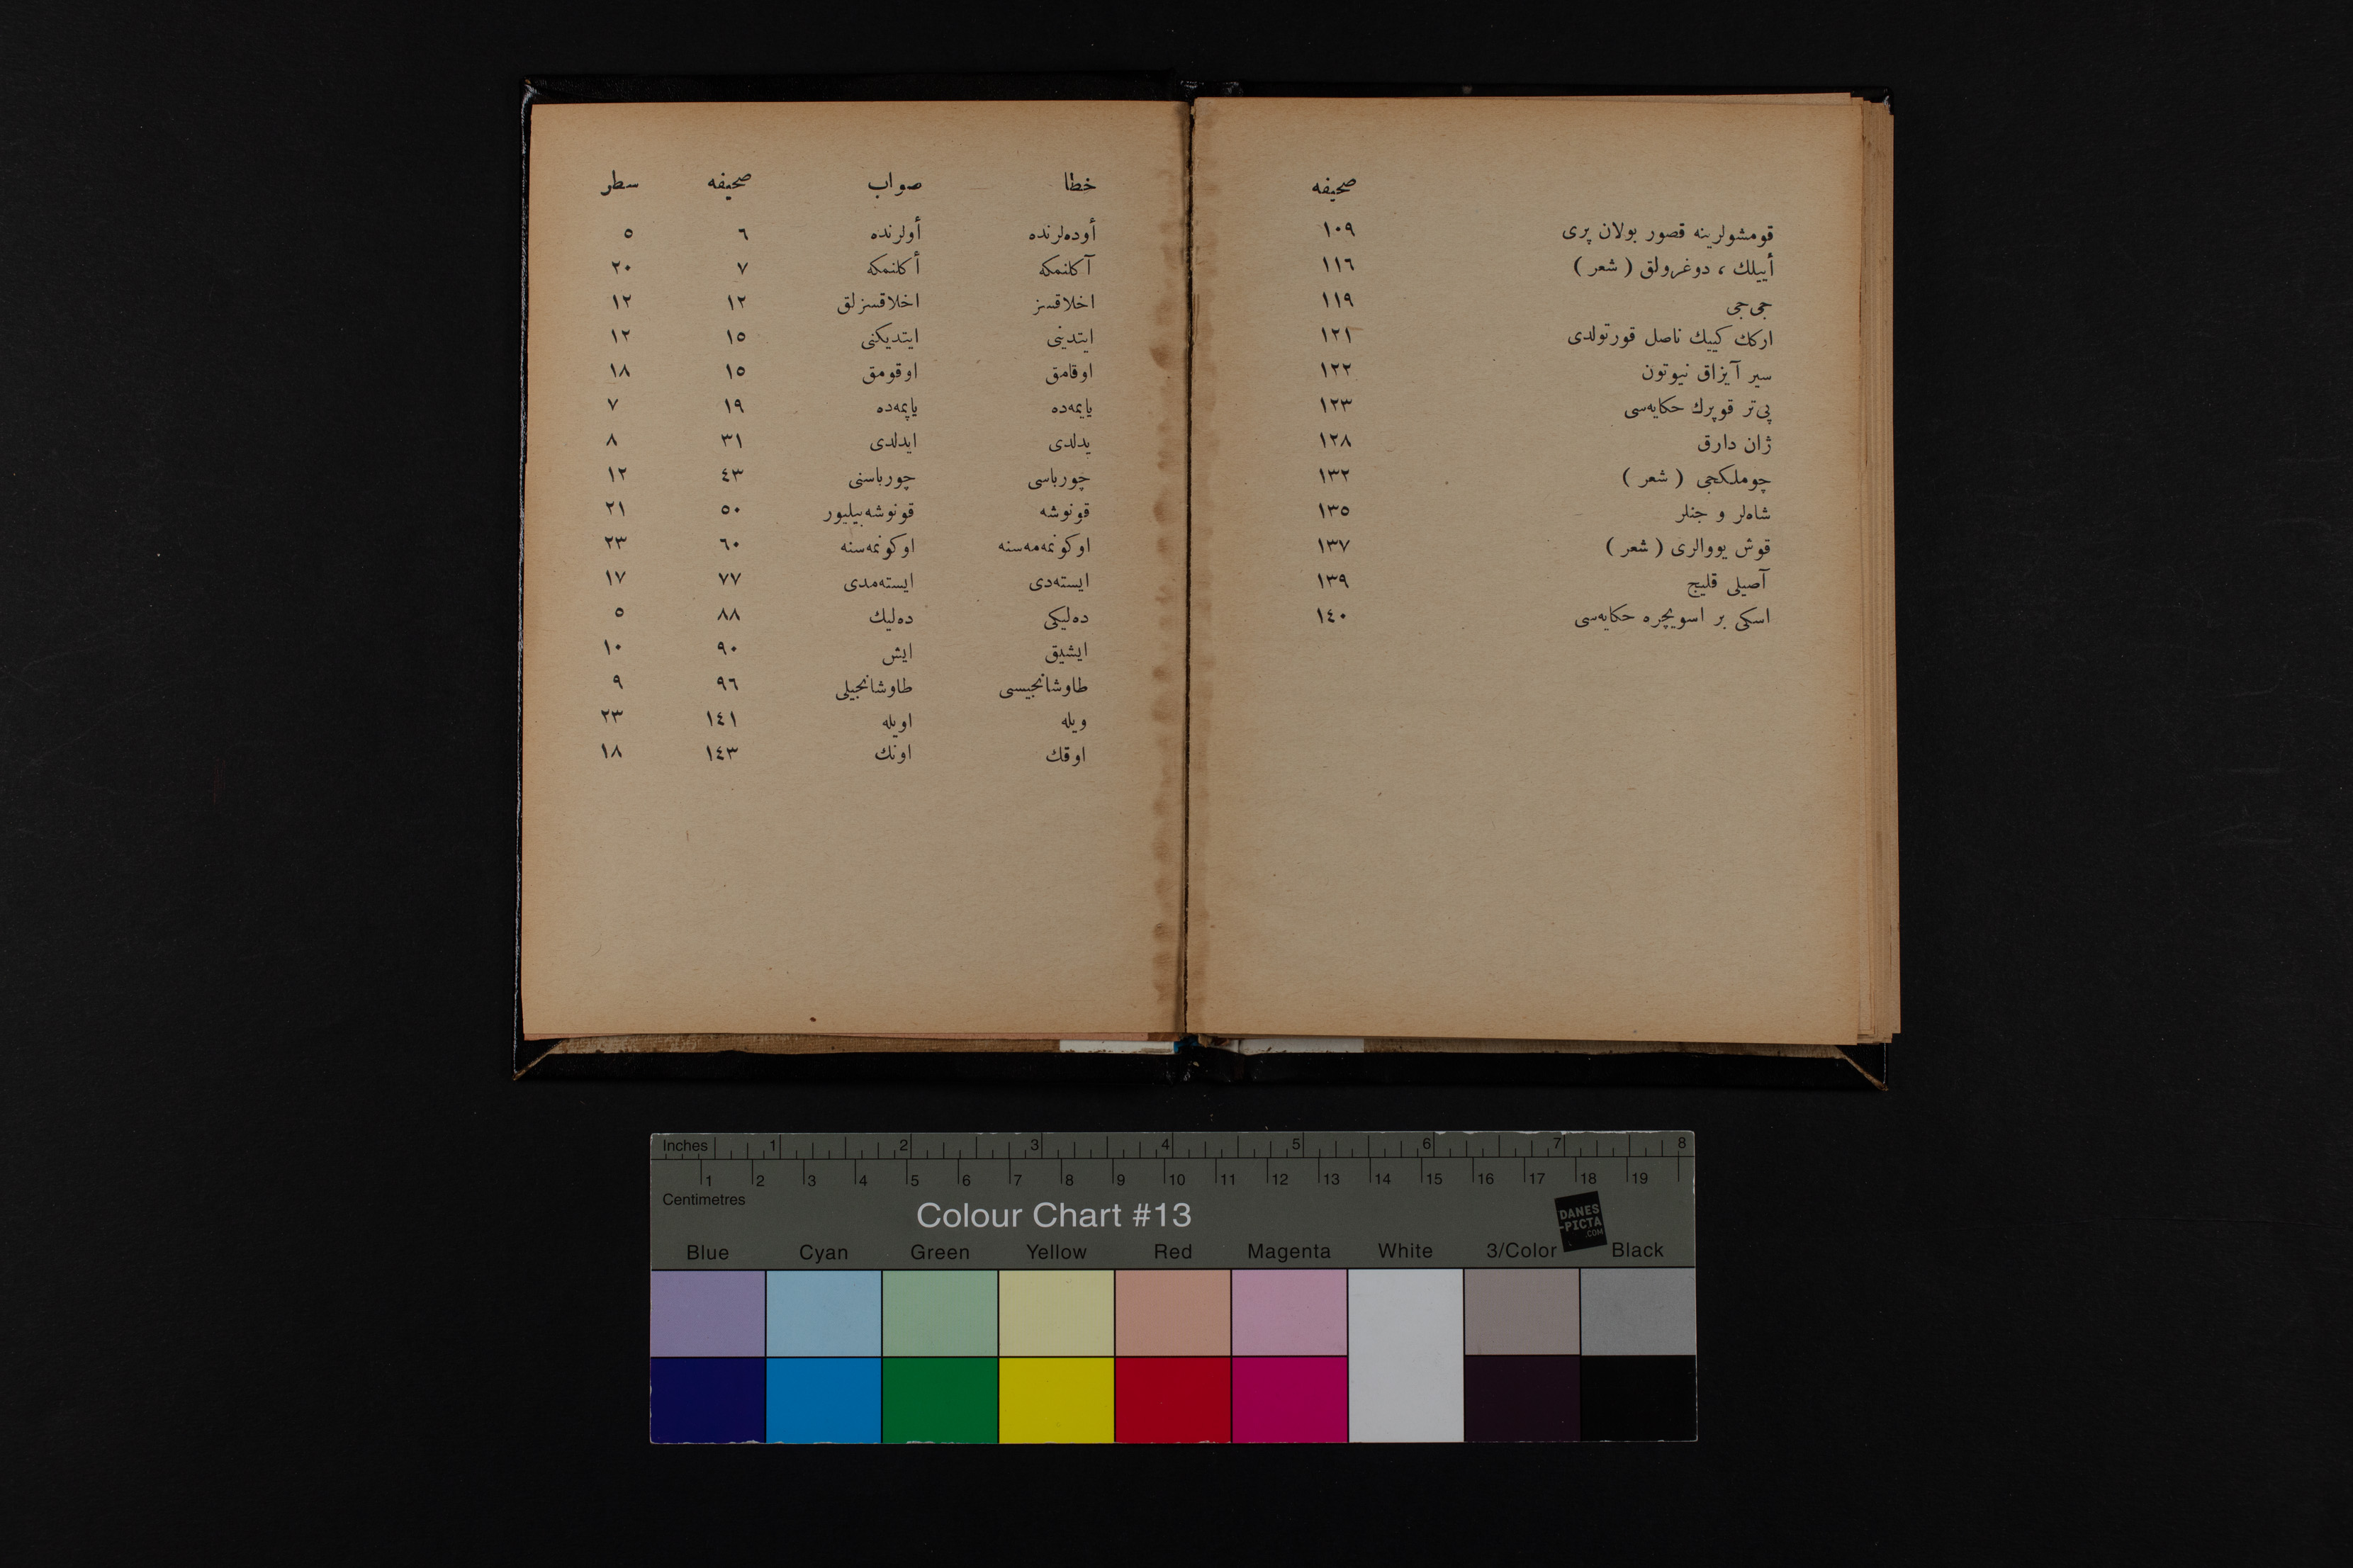 صحیفه
قومشولرینه قصور بولان پری ١٠٩
أییلك ، دوغرولق ( شعر ) ١١٦
جی‌جی ١١٩
اركك كییك ناصل قورتولدی ١٢١
سیر آیزاق نیوتون ١٢٢
پی‌تر قوپرك حكایه‌سی ١٢٣
ژان دارق ١٢٨
چوملكجی ( شعر ) ١٣٢
شاه‌لر و جنلر ١٣٥
قوش یووالری ( شعر ) ١٣٧
آصیلی قلیج ١٣٩
اسكی بر اسویچره حكایه‌سی ١٤٠
خطا صواب صحیفه سطر
أوده‌لرنده أولرنده ٦ ٥
آكلنمكه أكلنمكه ٧ ٢٠
اخلاقسز اخلاقسزلق ١٢ ١٢
ایتدینی ایتدیكنی ١٥ ١٢
اوقامق اوقومق ١٥ ١٨
یایمه‌ده یاپمه‌ده ١٩ ٧
یدلدی ایدلدی ٣١ ٨
چورباسی چورباسنی ٤٣ ١٢
قونوشه قونوشه‌بیلیور ٥٠ ٢١
اوكونمه‌مه‌سنه اوكونمه‌سنه ٦٠ ٢٣
ایسته‌دی ایسته‌مدی ٧٧ ١٧
ده‌لیكی ده‌لیك ٨٨ ٥
ایشیق ایش ٩٠ ١٠
طاوشانجیسی طاوشانجیلی ٩٦ ٩
ویله اویله ١٤١ ٢٣
اوقك اونك ١٤٣ ١٨
Inches 1 2 3 4 5 6 7 8
1 2 3 4 5 6 7 8 9 10 11 12 13 14 15 16 17 18 19
Centimetres
Colour Chart #13
DANES
-PICTA
.COM
Blue Cyan Green Yellow Red Magenta White 3/Color Black